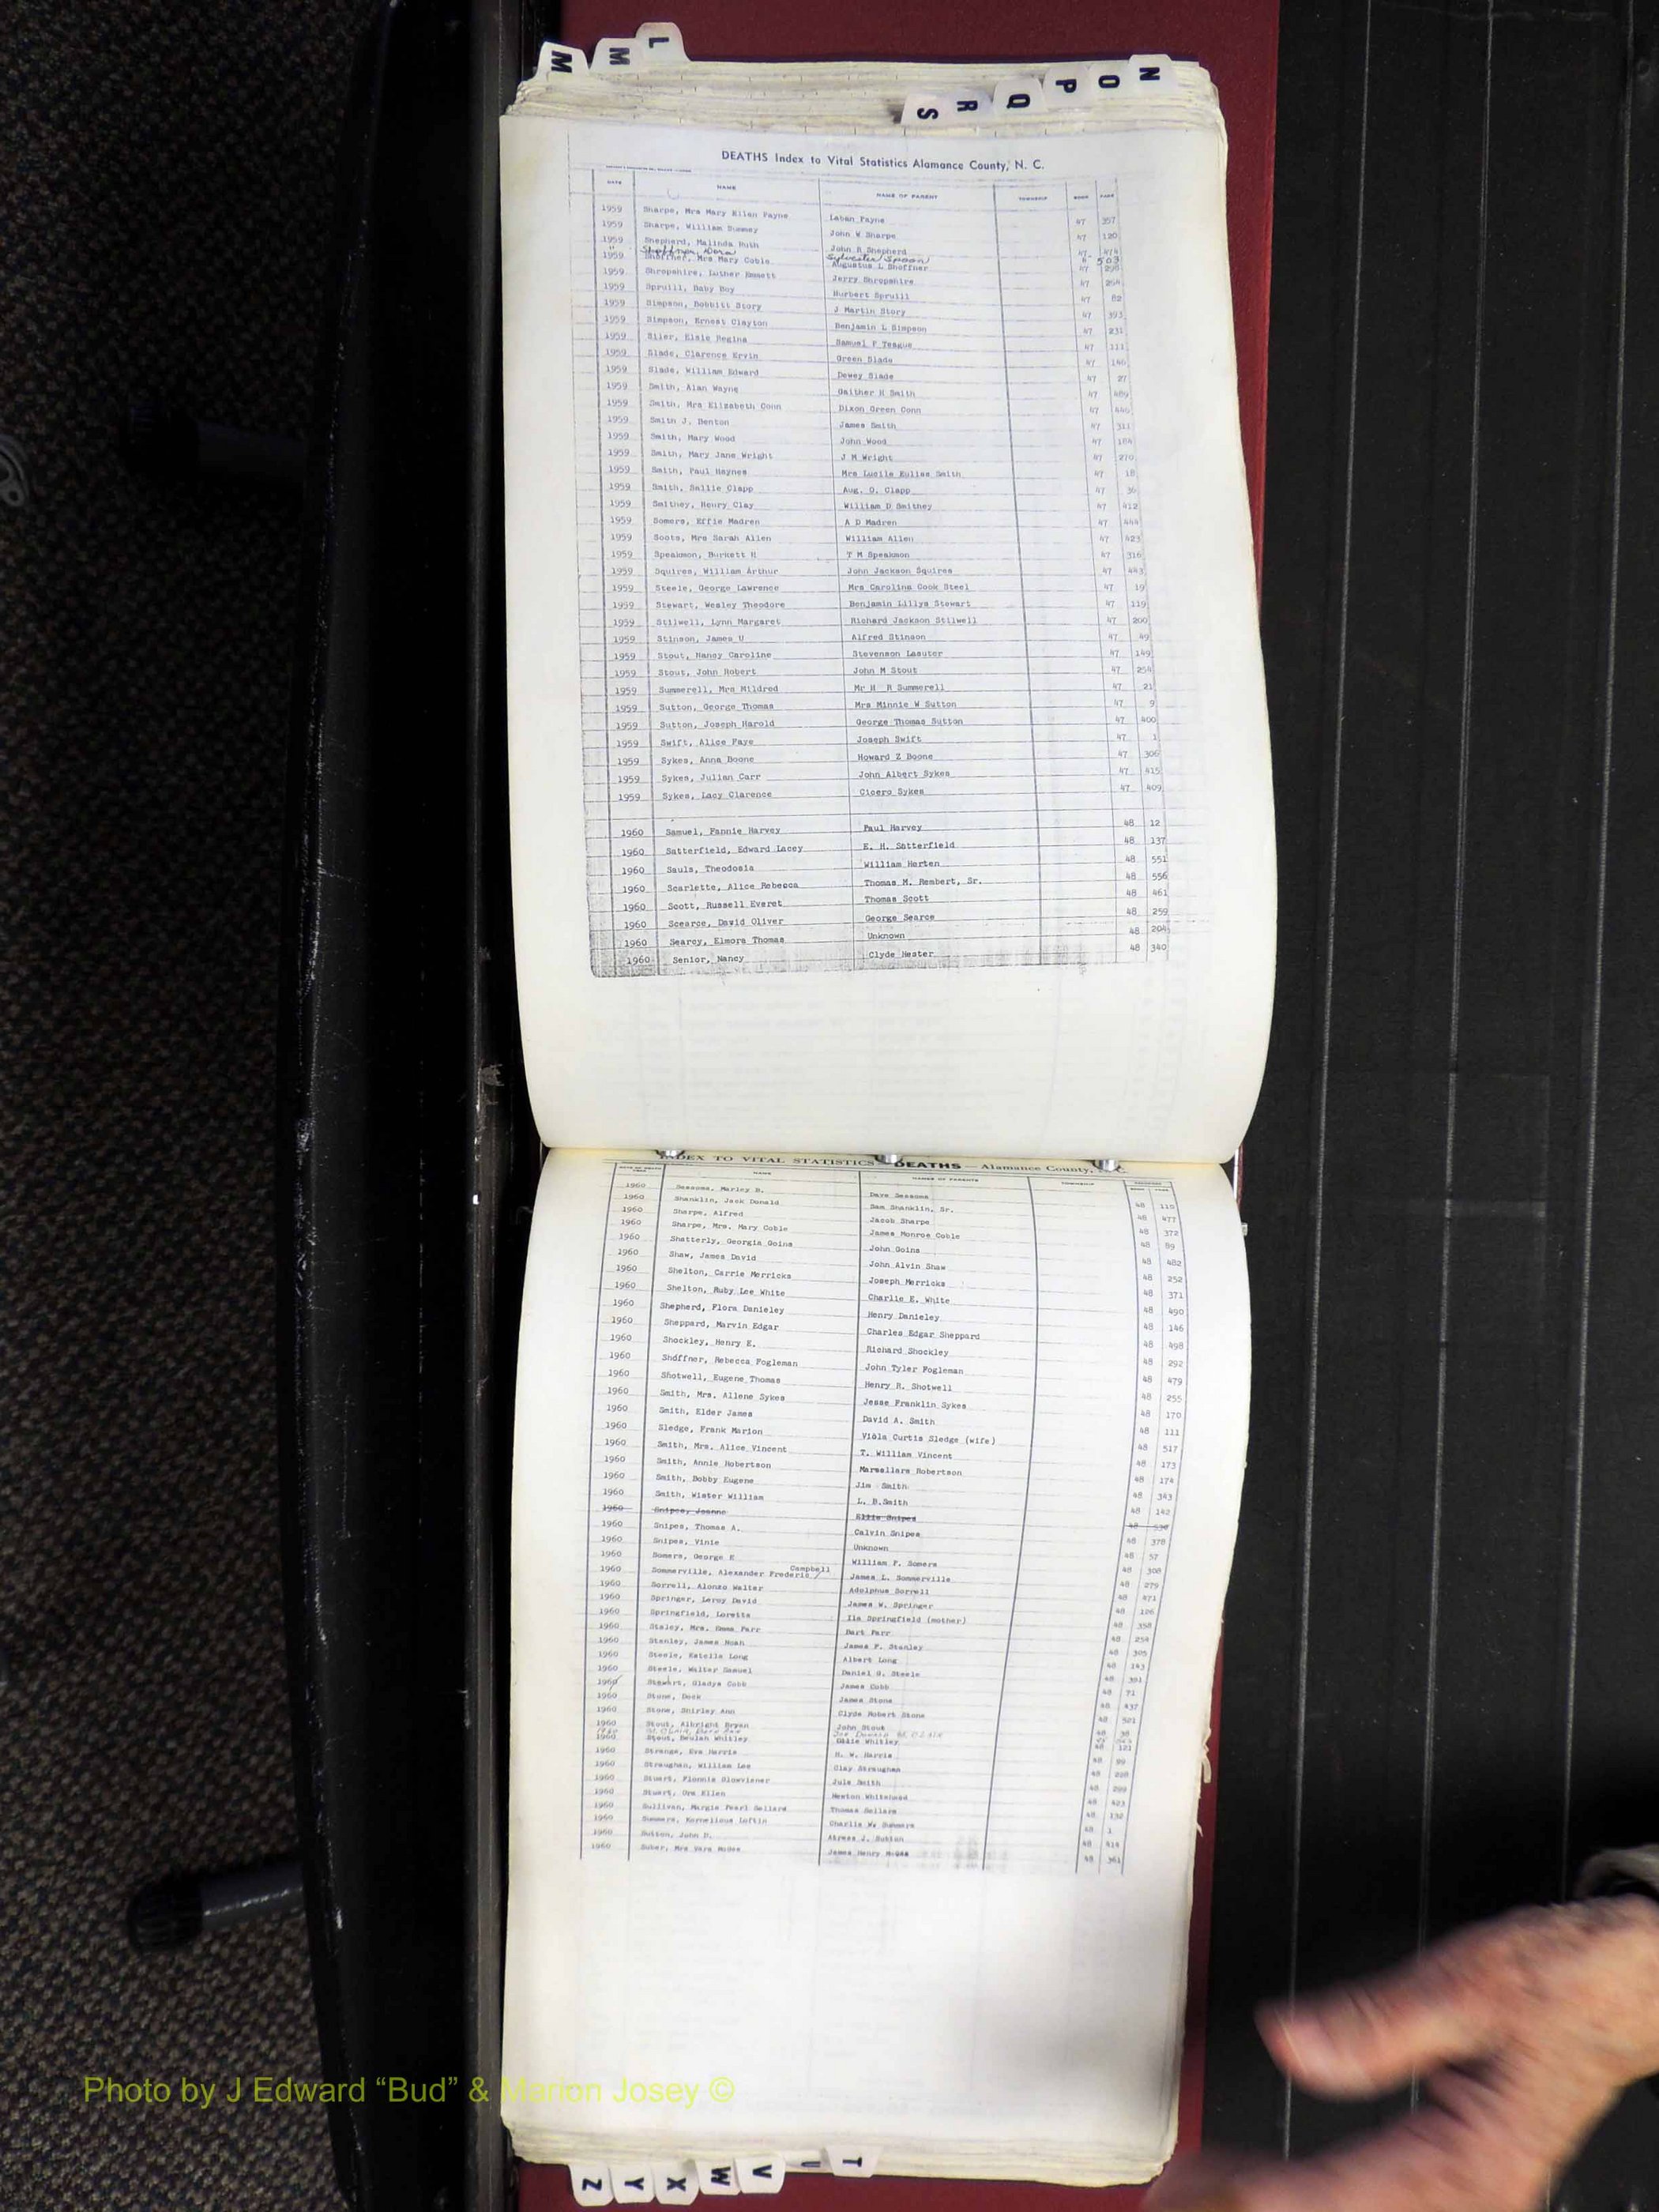 L
M
M
N
O
P
Q
R
S
DEATHS Index to Vital Statistics Alamance County, N. C.
DATE NAME NAME OF PARENT TOWNSHIP BOOK PAGE
1959 Sharpe, Mrs Mary Ellen Payne Laban Payne 47 357
1959 Sharpe, William Summey John W Sharpe 47 120
1959 Shepherd, Malinda Ruth John R Shepherd 47 474
" Shoffner, Dora Sylvester Spoon " 503
1959 Shoffner, Mrs Mary Coble Augustus L Shoffner 47 298
1959 Shropshire, Luther Emmett Jerry Shropshire 47 254
1959 Spruill, Baby Boy Hurbert Spruill 47 82
1959 Simpson, Bobbitt Story J Martin Story 47 393
1959 Simpson, Ernest Clayton Benjamin L Simpson 47 231
1959 Siler, Elsie Regina Samuel F Teague 47 111
1959 Slade, Clarence Ervin Green Slade 47 146
1959 Slade, William Edward Dewey Slade 47 27
1959 Smith, Alan Wayne Gaither H Smith 47 489
1959 Smith, Mrs Elizabeth Conn Dixon Green Conn 47 446
1959 Smith J. Benton James Smith 47 311
1959 Smith, Mary Wood John Wood 47 184
1959 Smith, Mary Jane Wright J M Wright 47 270
1959 Smith, Paul Haynes Mrs Lucile Smith 47 18
1959 Smith, Sallie Clapp Aug. O. Clapp 47 36
1959 Smithey, Henry Clay William D Smithey 47 412
1959 Somers, Effie Madren A D Madren 47 444
1959 Soots, Mrs Sarah Allen William Allen 47 423
1959 Speakmon, Burkett H T M Speakmon 47 316
1959 Squires, William Arthur John Jackson Squires 47 443
1959 Steele, George Lawrence Mrs Carolina Cook Steel 47 19
1959 Stewart, Wesley Theodore Benjamin Lillya Stewart 47 119
1959 Stilwell, Lynn Margaret Richard Jackson Stilwell 47 200
1959 Stinson, James U Alfred Stinson 47 49
1959 Stout, Nancy Caroline Stevenson Lasuter 47 149
1959 Stout, John Robert John M Stout 47 254
1959 Summerell, Mrs Mildred Mr H R Summerell 47 21
1959 Sutton, George Thomas Mrs Minnie W Sutton 47 9
1959 Sutton, Joseph Harold George Thomas Sutton 47 400
1959 Swift, Alice Faye Joseph Swift 47 1
1959 Sykes, Anna Boone Howard Z Boone 47 306
1959 Sykes, Julian Carr John Albert Sykes 47 415
1959 Sykes, Lacy Clarence Cicero Sykes 47 409
1960 Samuel, Fannie Harvey Paul Harvey 48 12
1960 Satterfield, Edward Lacey E. H. Satterfield 48 137
1960 Sauls, Theodosia William Herten 48 551
1960 Scarlette, Alice Rebecca Thomas M. Rembert, Sr. 48 556
1960 Scott, Russell Everet Thomas Scott 48 461
1960 Scearce, David Oliver George Searce 48 259
1960 Searcy, Elmore Thomas Unknown 48 204
1960 Senior, Nancy Clyde Hester 48 340
INDEX TO VITAL STATISTICS — DEATHS — Alamance County,
NAME NAMES OF PARENTS TOWNSHIP BOOK PAGE
1960 Sessoms, Marley B. Dave Sessoms 48 115
1960 Shanklin, Jack Donald Sam Shanklin, Sr. 48 477
1960 Sharpe, Alfred Jacob Sharpe 48 372
1960 Sharpe, Mrs. Mary Coble James Monroe Coble 48 89
1960 Shatterly, Georgia Goins John Goins 48 482
1960 Shaw, James David John Alvin Shaw 48 252
1960 Shelton, Carrie Merricks Joseph Merricks 48 371
1960 Shelton, Ruby Lee White Charlie E. White 48 490
1960 Shepherd, Flora Danieley Henry Danieley 48 146
1960 Sheppard, Marvin Edgar Charles Edgar Sheppard 48 498
1960 Shockley, Henry E. Richard Shockley 48 292
1960 Shoffner, Rebecca Fogleman John Tyler Fogleman 48 479
1960 Shotwell, Eugene Thomas Henry R. Shotwell 48 255
1960 Smith, Mrs. Allene Sykes Jesse Franklin Sykes 48 170
1960 Smith, Elder James David A. Smith 48 111
1960 Sledge, Frank Marion Viola Curtis Sledge (wife) 48 517
1960 Smith, Mrs. Alice Vincent T. William Vincent 48 173
1960 Smith, Annie Robertson Marsellars Robertson 48 174
1960 Smith, Bobby Eugene Jim Smith 48 343
1960 Smith, Wister William L. B.Smith 48 142
1960 Snipes, Joanne Ellis Snipes 48 530
1960 Snipes, Thomas A. Calvin Snipes 48 378
1960 Snipes, Vinie Unknown 48 57
1960 Somers, George E William F. Somers 48 308
1960 Sommerville, Alexander Frederic / Campbell James L. Sommerville 48 279
1960 Sorrell, Alonzo Walter Adolphus Sorrell 48 471
1960 Springer, Leroy David James W. Springer 48 126
1960 Springfield, Loretta Ila Springfield (mother) 48 358
1960 Staley, Mrs. Emma Parr Bart Parr 48 254
1960 Stanley, James Noah James F. Stanley 48 305
1960 Steele, Estella Long Albert Long 48 143
1960 Steele, Walter Samuel Daniel G. Steele 48 391
1960 Stewart, Gladys Cobb James Cobb 48 71
1960 Stone, Dock James Stone 48 437
1960 Stone, Shirley Ann Clyde Robert Stone 48 521
1960 Stout, Albright Bryan John Stout 48 38
1960 St. Clair, Joe Donald St. Clair
1960 Stout, Beulah Whitley Ellis Whitley 48 121
1960 Strange, Eva Harris H. W. Harris 48 99
1960 Straughan, William Lee Clay Straughan 48 228
1960 Stuart, Flonnie Glowviener Jule Smith 48 299
1960 Stuart, Ora Ellen Newton Whitehead 48 423
1960 Sullivan, Margie Pearl Sellard Thomas Sellars 48 132
1960 Summers, Kornelious Loftin Charlie W. Summers 48 1
1960 Sutton, John D. Atress J. Sutton 48 414
1960 Suber, Mrs Vera McGee James Henry McGee 48 361
Photo by J Edward “Bud” & Marion Josey ©
Z
Y
X
W
V
U
T